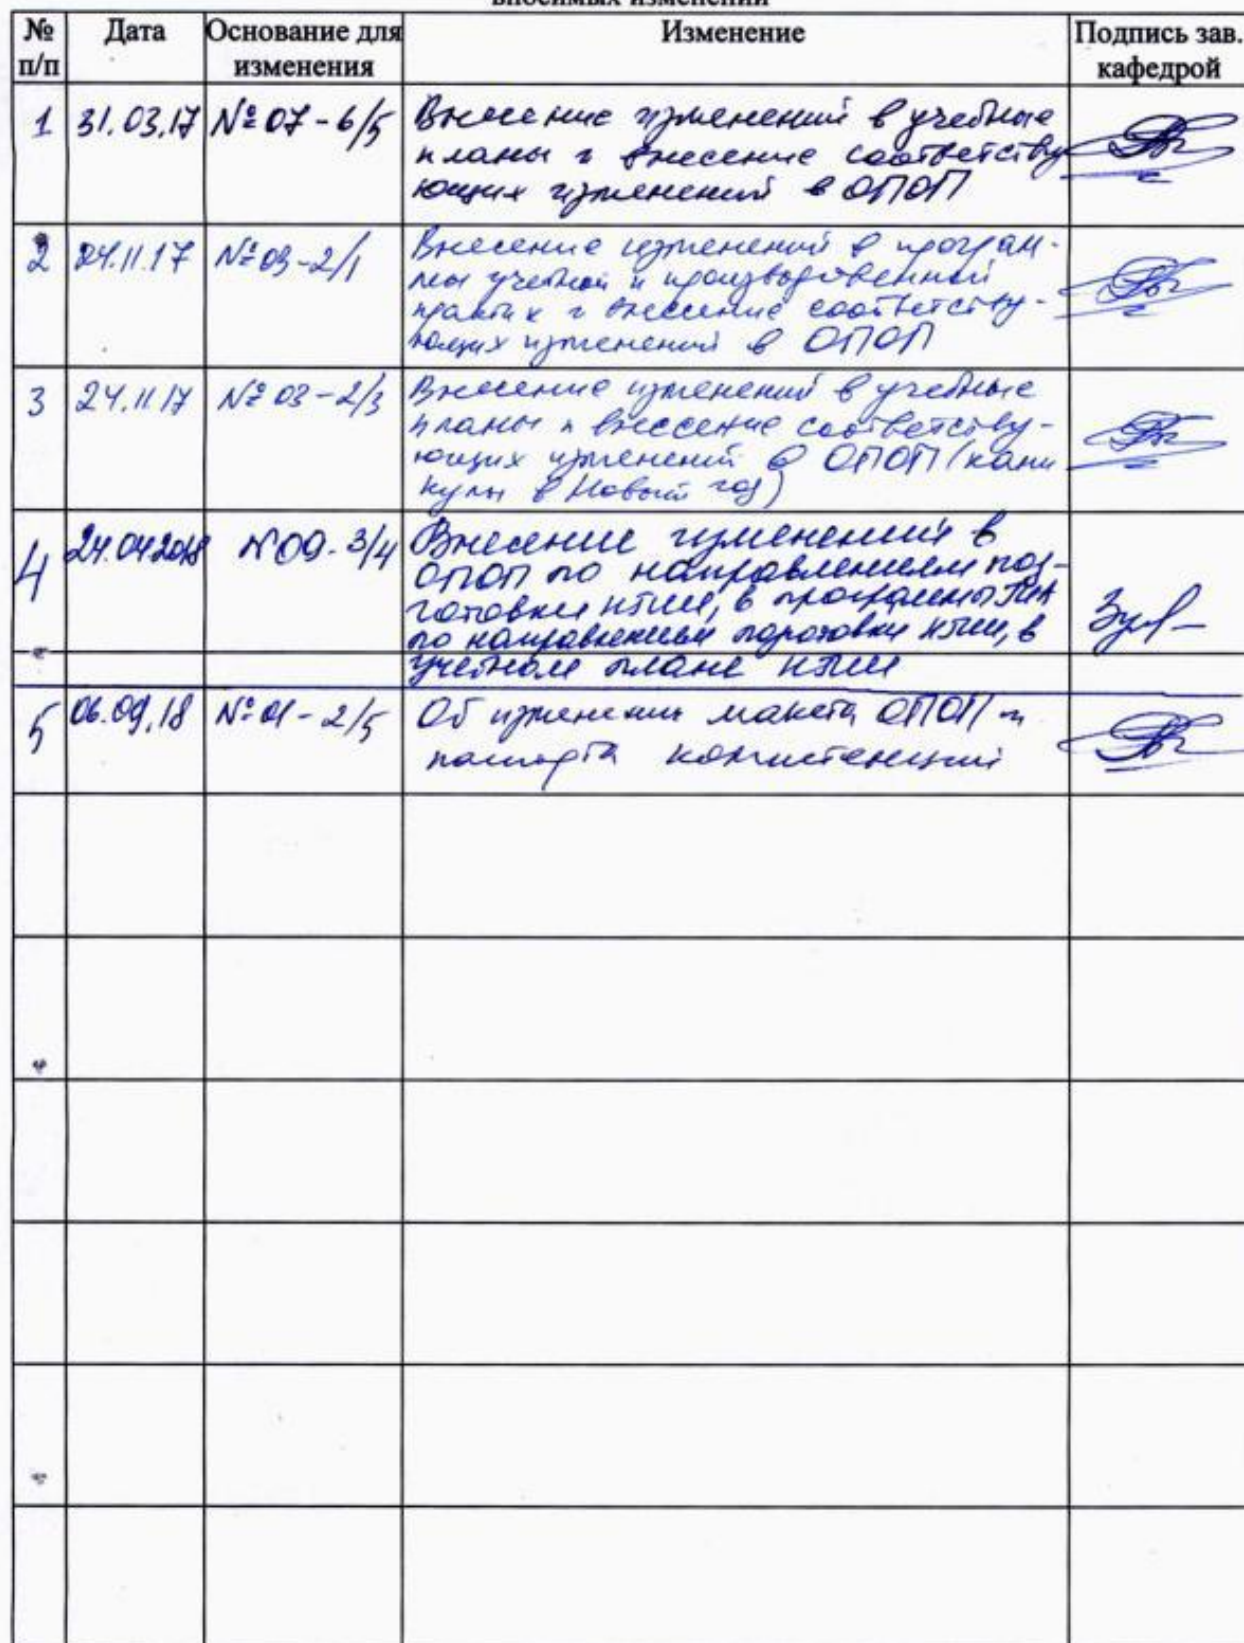 вносимых изменений
№ Дата Основание для Изменение Подпись зав.
п/п изменения кафедрой
1 31.03.17 № 07-6/5 Внесение изменений в учебные
планы и внесение соответству
ющих изменений в ОПОП
2 24.11.17 № 03-2/1 Внесение изменений в програм-
мы учебной и производственной
практик и внесение соответству-
ющих изменений в ОПОП
3 24.11.17 № 03-2/3 Внесение изменений в учебные
планы и внесение соответству-
ющих изменений в ОПОП (кани
кулы в Новый год)
4 24.04.2018 № 09-3/4 Внесение изменений в
ОПОП по направлениям под-
готовки НТИИ, в программы ГИА
по направлениям подготовки НТИИ, в
учебном плане НТИИ
5 06.09.18 № 01-2/5 Об изменении макета ОПОП и
паспорта компетенций